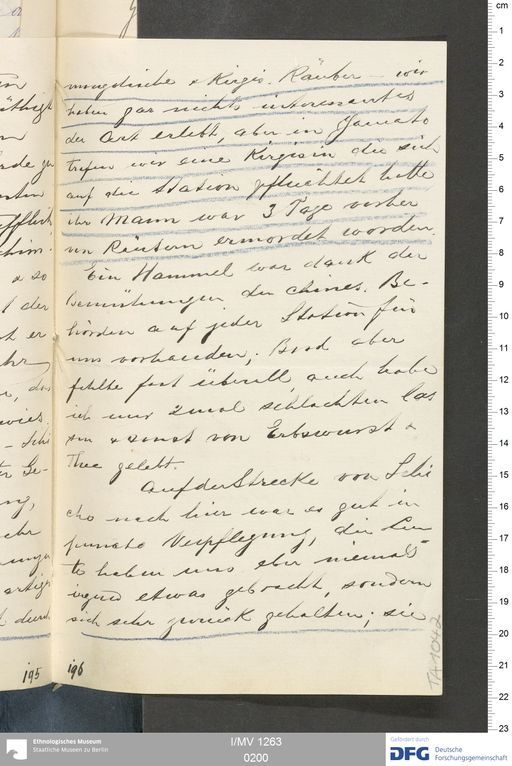 mongolische & Kirgis. Räuber – wir
haben gar nichts interessantes
der Art erlebt, aber in Jamato
trafen wir eine Kirgisin die sich
auf die Station geflüchtet hatte
ihr Mann war 3 Tage vorher
von Räubern ermordet worden.
Ein Hammel war dank der
Bemühungen der chines. Be-
hörden auf jeder Station für
uns vorhanden, Brod aber
fehlte fast überall, auch habe
ich nur 2mal schlachten las
sen & sonst von Erbswurst &
Thee gelebt.
Auf der Strecke von Schi
cho nach hier war es gut in
punato Verpflegung, die Leu
te haben uns aber niemals
irgend etwas gebracht, sondern
sich sehr zurück gehalten; sie
195
196
TA 1042
cm
1
2
3
4
5
6
7
8
9
10
11
12
13
14
15
16
17
18
19
20
21
22
23
Ethnologisches Museum
Staatliche Museen zu Berlin
I/MV 1263
0200
Gefördert durch
DFG Deutsche
Forschungsgemeinschaft